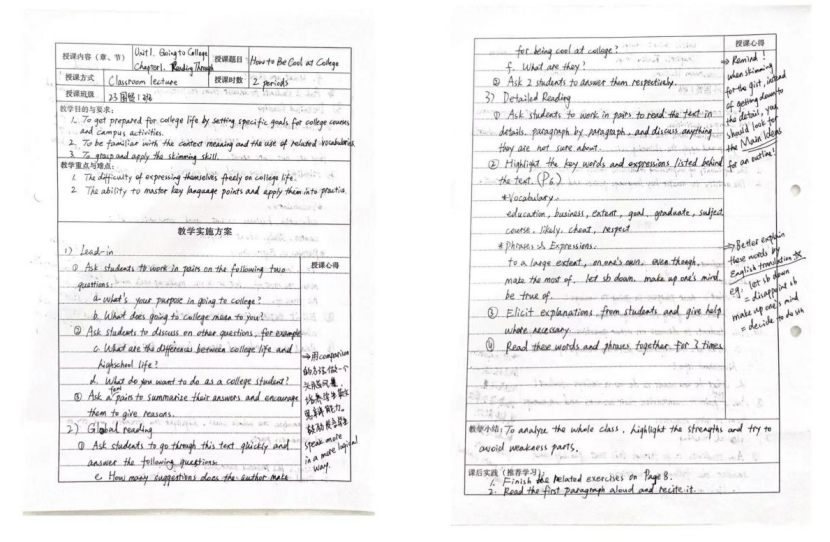 授课内容（章、节） Unit 1. Going to College
Chapter 1. Reading Through
授课题目 How to Be Cool at College
授课方式 Classroom lecture 授课时数 2 periods
授课班级 23
教学目的与要求：
1. To get prepared for college life by setting specific goals for college courses
and campus activities.
2. To be familiar with the context meaning and the use of related vocabularies.
3. To grasp and apply the skimming skill.
教学重点与难点：
1. The difficulty of expressing themselves freely on college life.
2. The ability to master key language points and apply them into practice.
教学实施方案
授课心得
1) Lead-in
① Ask students to work in pairs on the following two
questions:
a. What's your purpose in going to college?
b. What does going to college mean to you?
② Ask students to discuss on other questions, for example
c. What are the differences between college life and
highschool life?
d. What do you want to do as a college student?
③ Ask a pair to summarize their answers and encourage
them to give reasons.
→用comparison
的方法做一个
培养学生
思辨能力。
鼓励学生
speak more
in a more logical
way.
2) Global reading
① Ask students to go through this text quickly and
answer the following questions:
e. How many suggestions does the author make
for being cool at college?
f. What are they?
② Ask 2 students to answer them respectively.
3) Detailed Reading
① Ask students to work in pairs to read the text in
details, paragraph by paragraph, and discuss anything
they are not sure about.
② Highlight the key words and expressions listed behind
the text. (P6)
*Vocabulary.
education, business, extent, goal, graduate, subject
course, likely, cheat, respect
*Phrases & Expressions.
to a large extent, on one's own, even though,
make the most of, let sb down, make up one's mind,
be true of
③ Elicit explanations from students and give help
where necessary.
④ Read these words and phrases together for 3 times
授课心得
→ Remind!
when skimming
for the gist, instead
of getting down to
the detail, you
should look for
the Main Ideas
for an outline!
⇒ Better explain
these words by
English translation ☆
eg: let sb down
= disappoint sb
make up one's mind
= decide to do sth
教学小结: To analyze the whole class, highlight the strengths and try to
avoid weakness parts.
课后实践（推荐学习）:
1. Finish the related exercises on Page 8.
2. Read the first paragraph aloud and recite it.